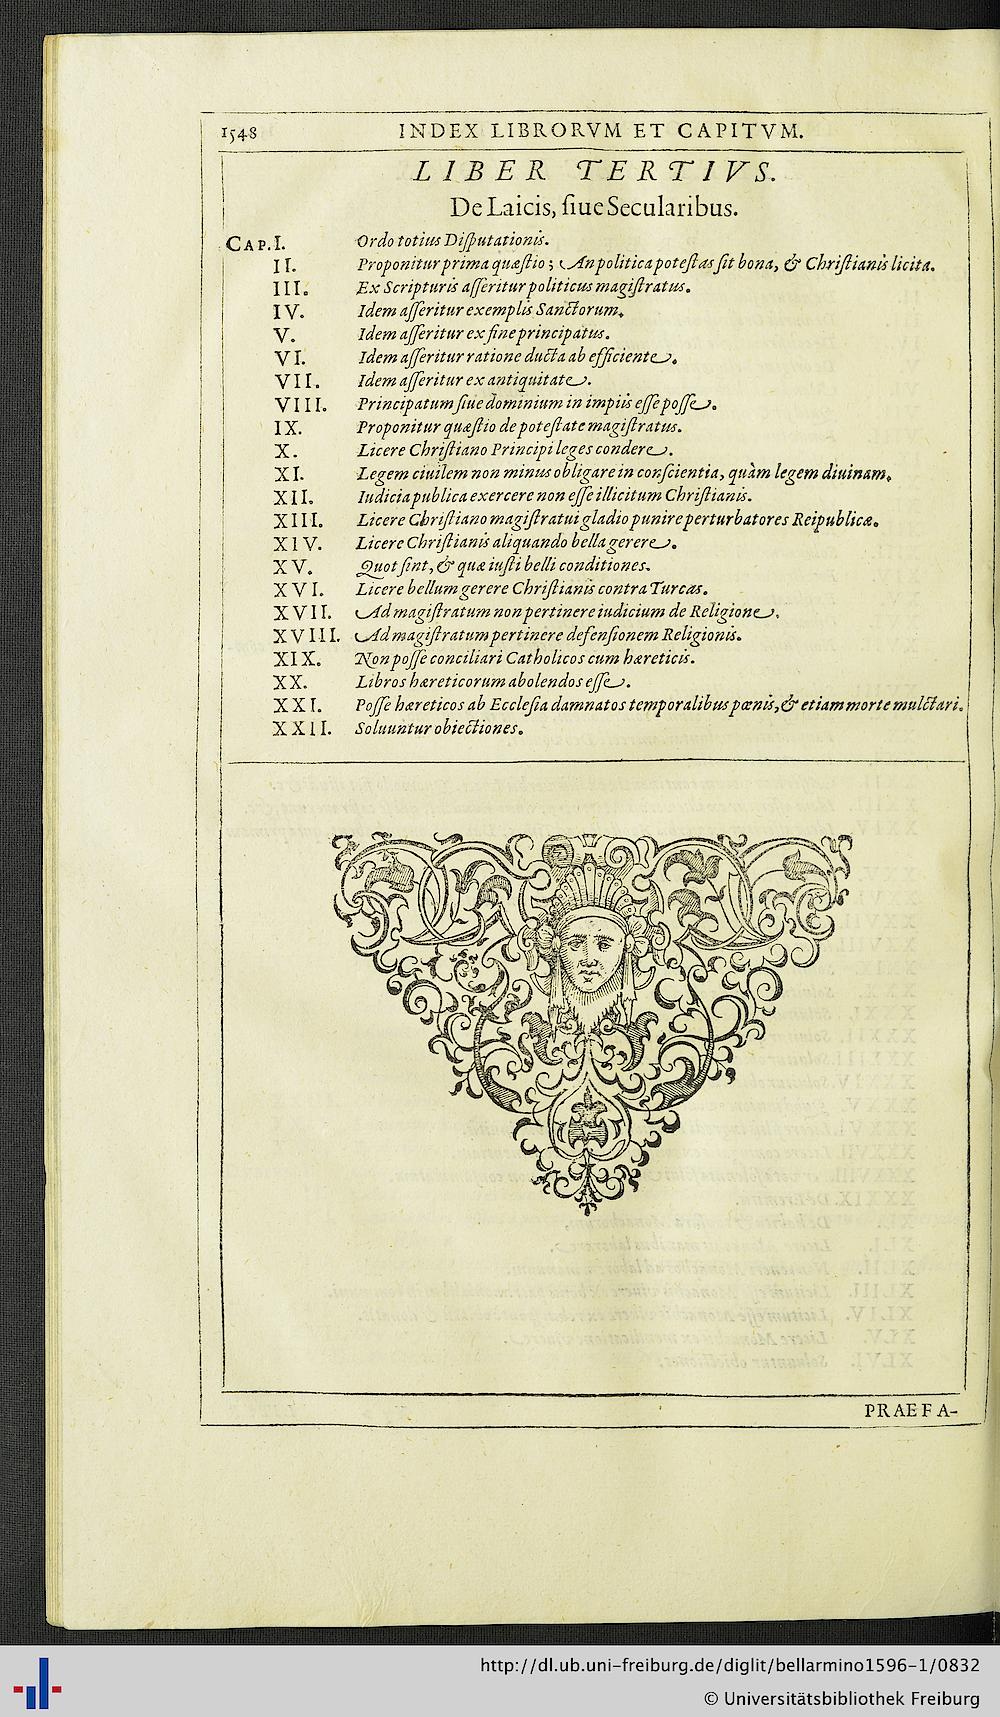 1548 INDEX LIBRORVM ET CAPITVM.
LIBER TERTIVS.
De Laicis, ſiue Secularibus.
CAP. I. Ordo totius Diſputationis.
II. Proponitur prima quæſtio; An politica poteſtas ſit bona, & Chriſtianis licita.
III. Ex Scripturis aſſeritur politicus magiſtratus.
IV. Idem aſſeritur exemplis Sanctorum.
V. Idem aſſeritur ex fine principatus.
VI. Idem aſſeritur ratione ducta ab efficiente.
VII. Idem aſſeritur ex antiquitate.
VIII. Principatum ſiue dominium in impiis eſſe poſſe.
IX. Proponitur quæſtio de poteſtate magiſtratus.
X. Licere Chriſtiano Principi leges condere.
XI. Legem ciuilem non minus obligare in conſcientia, quàm legem diuinam.
XII. Iudicia publica exercere non eſſe illicitum Chriſtianis.
XIII. Licere Chriſtiano magiſtratui gladio punire perturbatores Reipublicæ.
XIV. Licere Chriſtianis aliquando bella gerere.
XV. Quot ſint, & quæ iuſti belli conditiones.
XVI. Licere bellum gerere Chriſtianis contra Turcas.
XVII. Ad magiſtratum non pertinere iudicium de Religione.
XVIII. Ad magiſtratum pertinere defenſionem Religionis.
XIX. Non poſſe conciliari Catholicos cum hæreticis.
XX. Libros hæreticorum abolendos eſſe.
XXI. Poſſe hæreticos ab Eccleſia damnatos temporalibus pœnis, & etiam morte mulctari.
XXII. Soluuntur obiectiones.
PRAEFA-
http://dl.ub.uni-freiburg.de/diglit/bellarmino1596-1/0832
© Universitätsbibliothek Freiburg